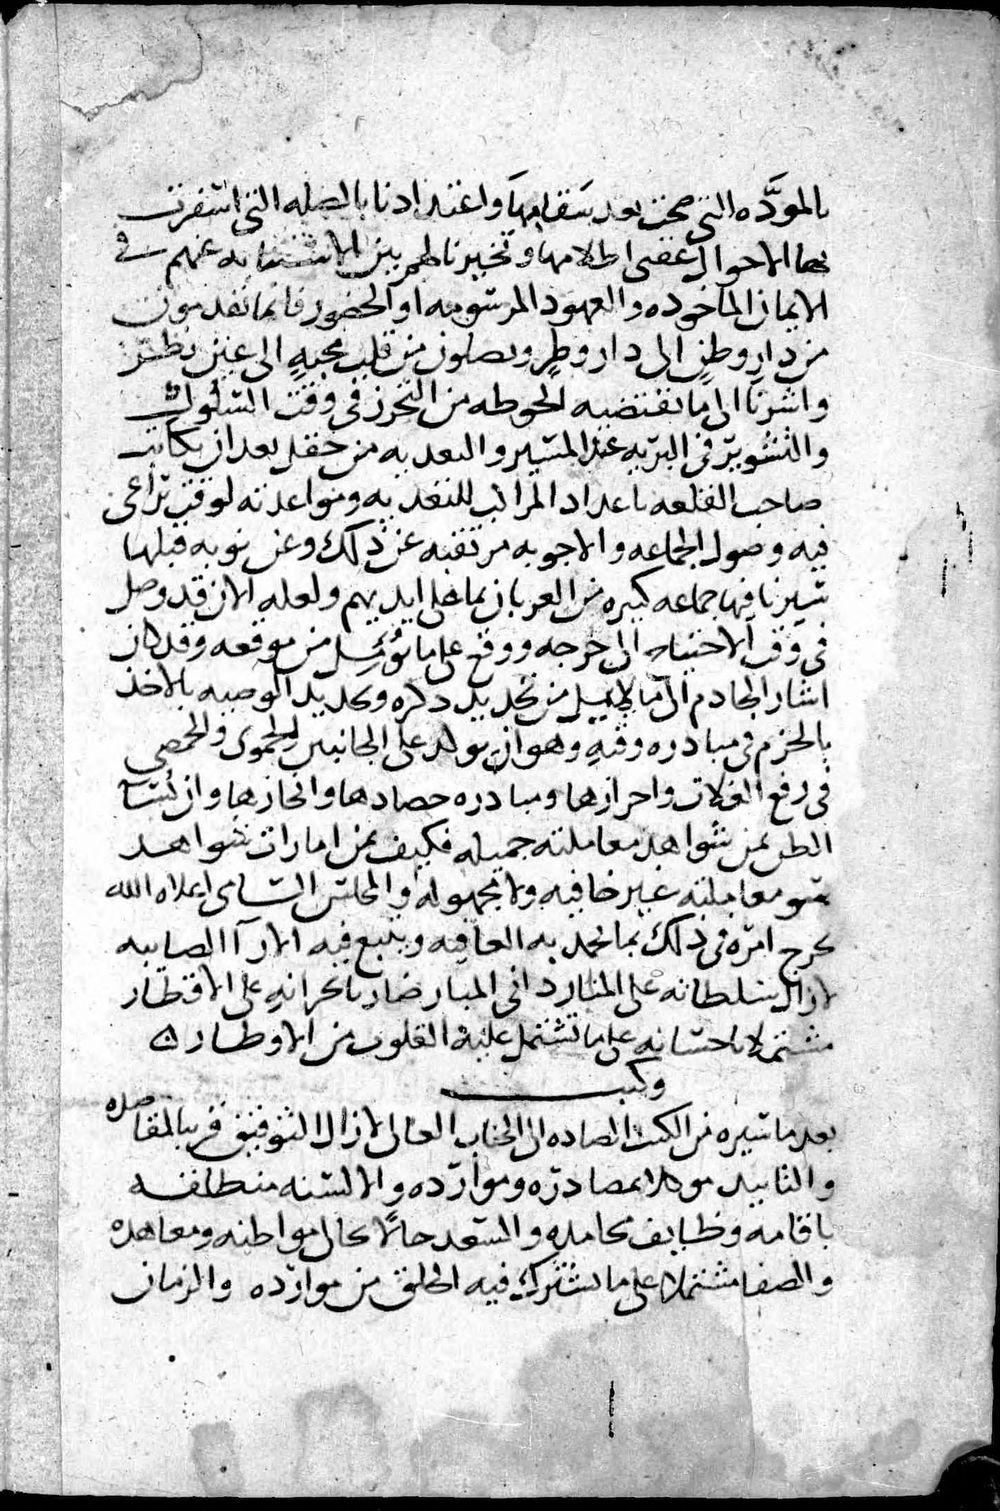 بالمودَّه التى صحت بعد سقامها واعتدادنا بالصله التى اسفرت
بها الاحوال عقيب اظلامها وتخييرنا لهم بين الاستنابه عنهم فى
الايمان الماخوده والعهود المرسومه او الحضور فانما تقدمون
من دار وطنٍ الى دار وطرٍ ويصلون من قلب محبهِ الى عين
واشرنا الى ما تقتضيه الحوطه من التحرز فى وقت السلوك
والتشويق فى البريه عند المسير والتعديه من حفل بعد ان يكاتب
صاحب القلعه باعداد المراكب للتعديه ومواعدته لوقت يراعى
فيه وصول الجماعه والاجوبه مرتقبه عن ذلك وعن نوبه قبلها
سيرنا فيها جماعه كبيره من العربان بما على ايديهم ولعله الان قد وصل
فى وقت الاحتياج الى خرجه ووقع على ما نُوَمِّل من موقعه وقد كان
اشار الخادم الى ما لا يمل من تجديد ذكره وتجديد الوصيه بالاخذ
بالحزم فى مبادره وقتهِ وهو ان يوكد على الجانبين الحموى والحمصى
فى رفع الغلات واحرازها ومبادره حصادها وانجازها وان نُسئ
الظن بمن شواهد معاملته جميله فكيف بمن امارات شواهد
سو معاملته غير خافيه ولا مجهوله والمجلس السامى اعلاه الله
يخرج امره فى ذلك بما تحمد به العاقبه ويتبع فيه الارآ الصايبه
لا زال سلطانه على المنار دانى المبار ضاربا بجرانهِ على الاقطار
مشتملا باحسانه على ما تشتمل عليهُ القلوب من الاوطار ۞
وكتب
بعد ما سيره من الكتب الصادره الى الجناب العالى لا زال التوفيق قرين المقاصده
والتاييد موكلا بمصادره وموارده والالسنه منطلقه
باقامه وظايف محامده والسعد حالاً بحال مواطنه ومعاهده
والصفا مشتملا على ما يشترك فيه الخلق من موارده والزمان